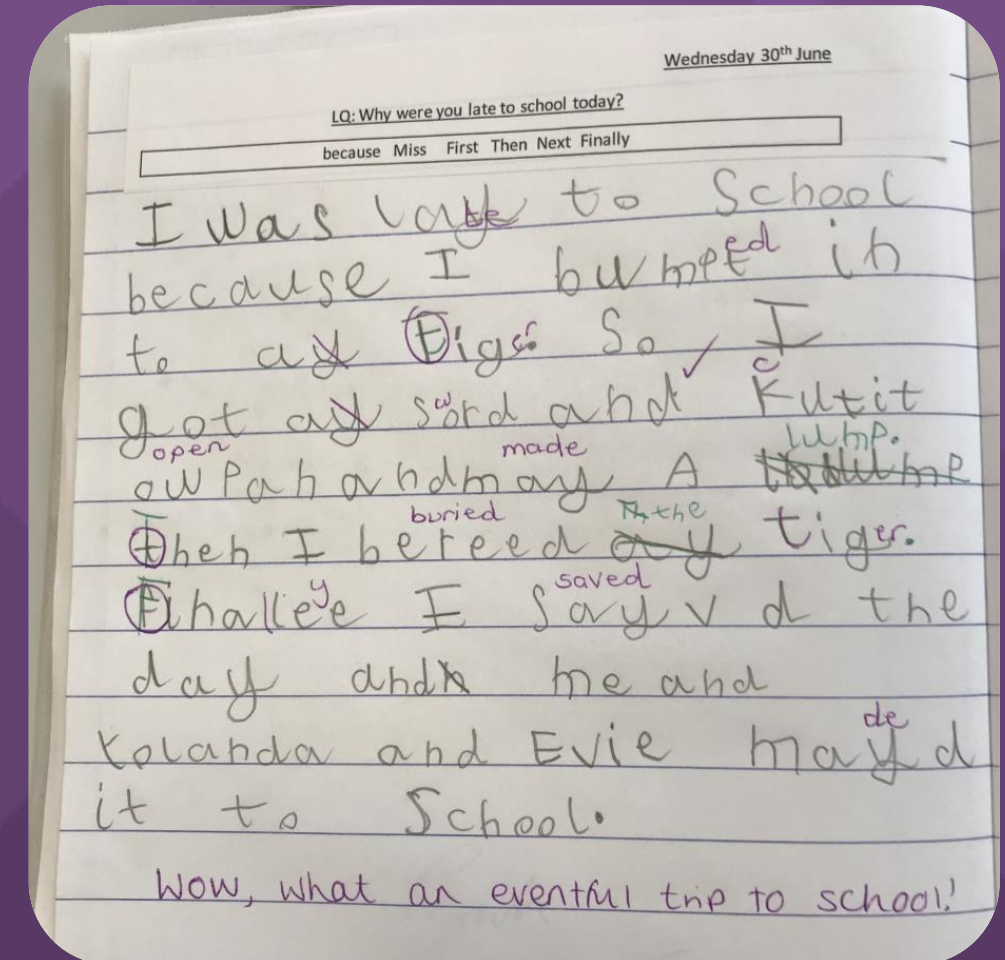 Wednesday 30th June
LQ: Why were you late to school today?
because Miss First Then Next Finally
I was late to School
because I bumpted in
to ay tiger So I
c
got ay sword and kutit
open made lump.
owpah andmay A
buried the
then I bereed ay tiger.
y saved
Finalleye I sayvd the
day and me and
Yolanda and Evie mayd
de
it to School.
Wow, what an eventful trip to school!